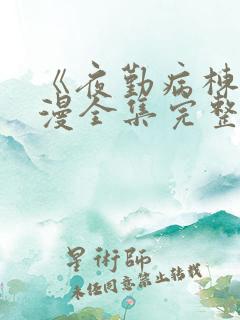 《夜勤病栋
漫全集完整
星術師
未经同意禁止转载